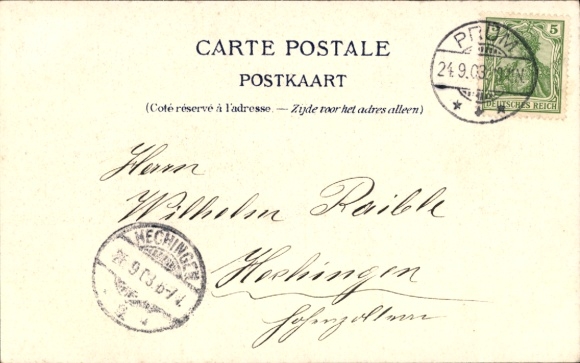 CARTE POSTALE
POSTKAART
(Coté réservé à l'adresse. — Zijde voor het adres alleen)
PRÜM
24.9.03
5
DEUTSCHES REICH
Herrn
Wilhelm Raible
Hechingen
Hohenzollern
HECHINGEN
9.03.6-7